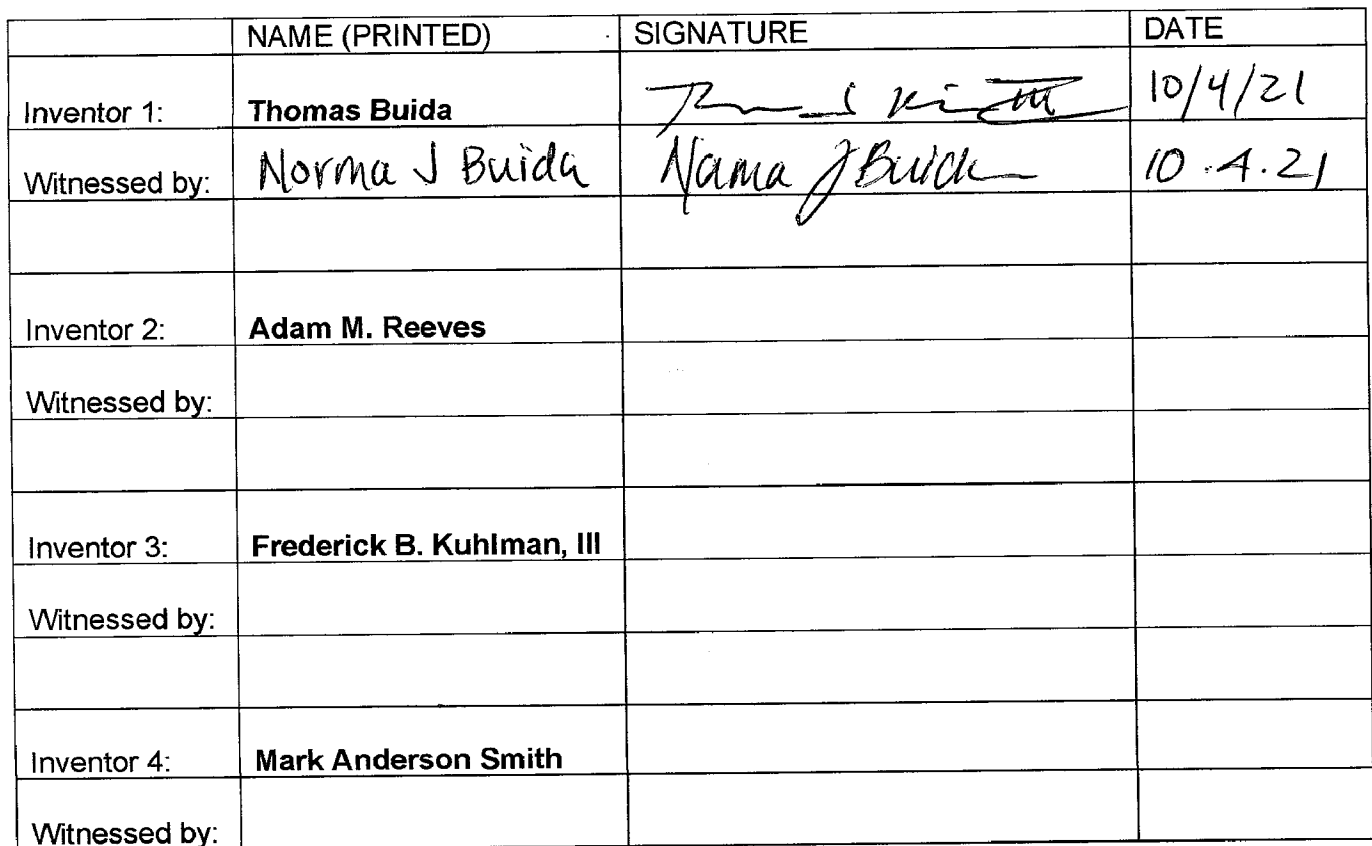 NAME (PRINTED) SIGNATURE DATE
Inventor 1: Thomas Buida 10/4/21
Witnessed by: Norma J Buida Norma J Buida 10.4.21
Inventor 2: Adam M. Reeves
Witnessed by:
Inventor 3: Frederick B. Kuhlman, III
Witnessed by:
Inventor 4: Mark Anderson Smith
Witnessed by: